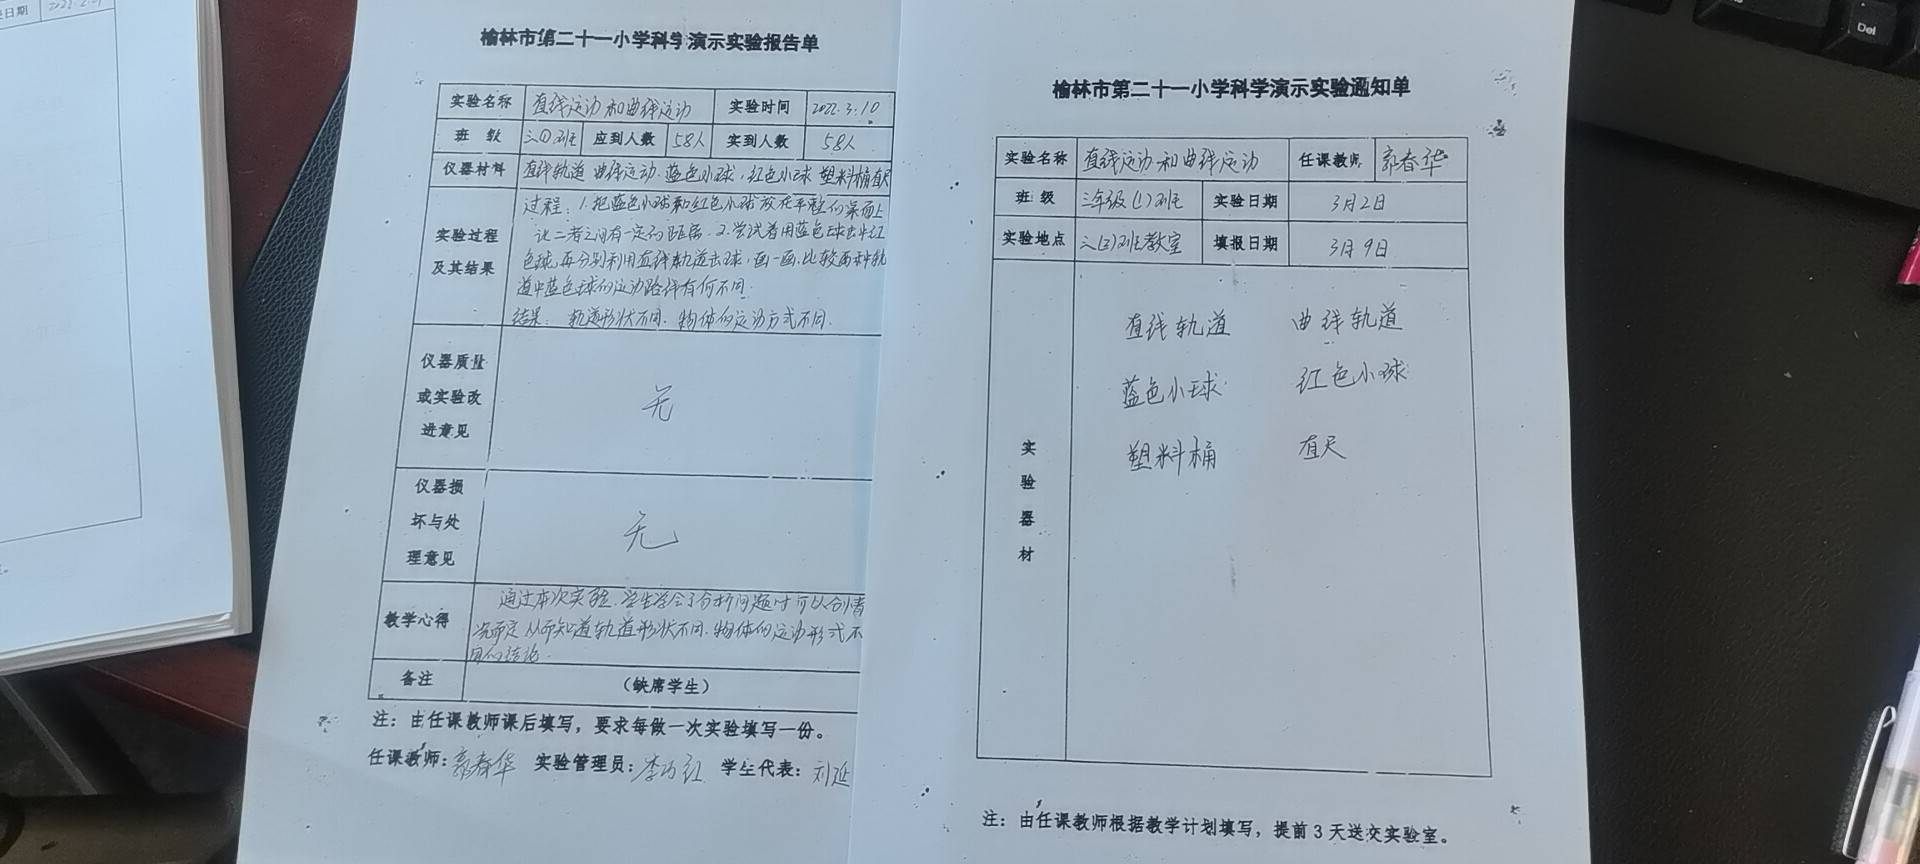 榆林市第二十一小学科学演示实验报告单
实验名称 直线运动和曲线运动 实验时间 2022.3.10
班 级 三(1)班 应到人数 58人 实到人数 58人
仪器材料 直线轨道 曲线运动 蓝色小球 红色小球 塑料桶 直尺
实验过程
及其结果
过程: 1.把蓝色小球和红色小球放在平整的桌面上
让二者之间有一定的距离. 2.尝试着用蓝色球击中红
色球,再分别利用直线轨道击球,画一画,比较两种轨
道中蓝色球的运动路线有何不同.
结果: 轨道形状不同. 物体的运动方式不同.
仪器质量
或实验改
进意见
无
仪器损
坏与处
理意见
无
教学心得
通过本次实验,学生学会了分析问题时可以分情
况而定 从而知道轨道形状不同.物体的运动形式不
同的结论.
备注 (缺席学生)
注: 由任课教师课后填写,要求每做一次实验填写一份。
任课教师: 郭春华 实验管理员: 李 红 学生代表: 刘延
榆林市第二十一小学科学演示实验通知单
实验名称 直线运动和曲线运动 任课教师 郭春华
班 级 三年级(1)班 实验日期 3月2日
实验地点 三(2)班教室 填报日期 3月9日
实
验
器
材
直线轨道 曲线轨道
蓝色小球 红色小球
塑料桶 直尺
注: 由任课教师根据教学计划填写,提前3天送交实验室。
Del